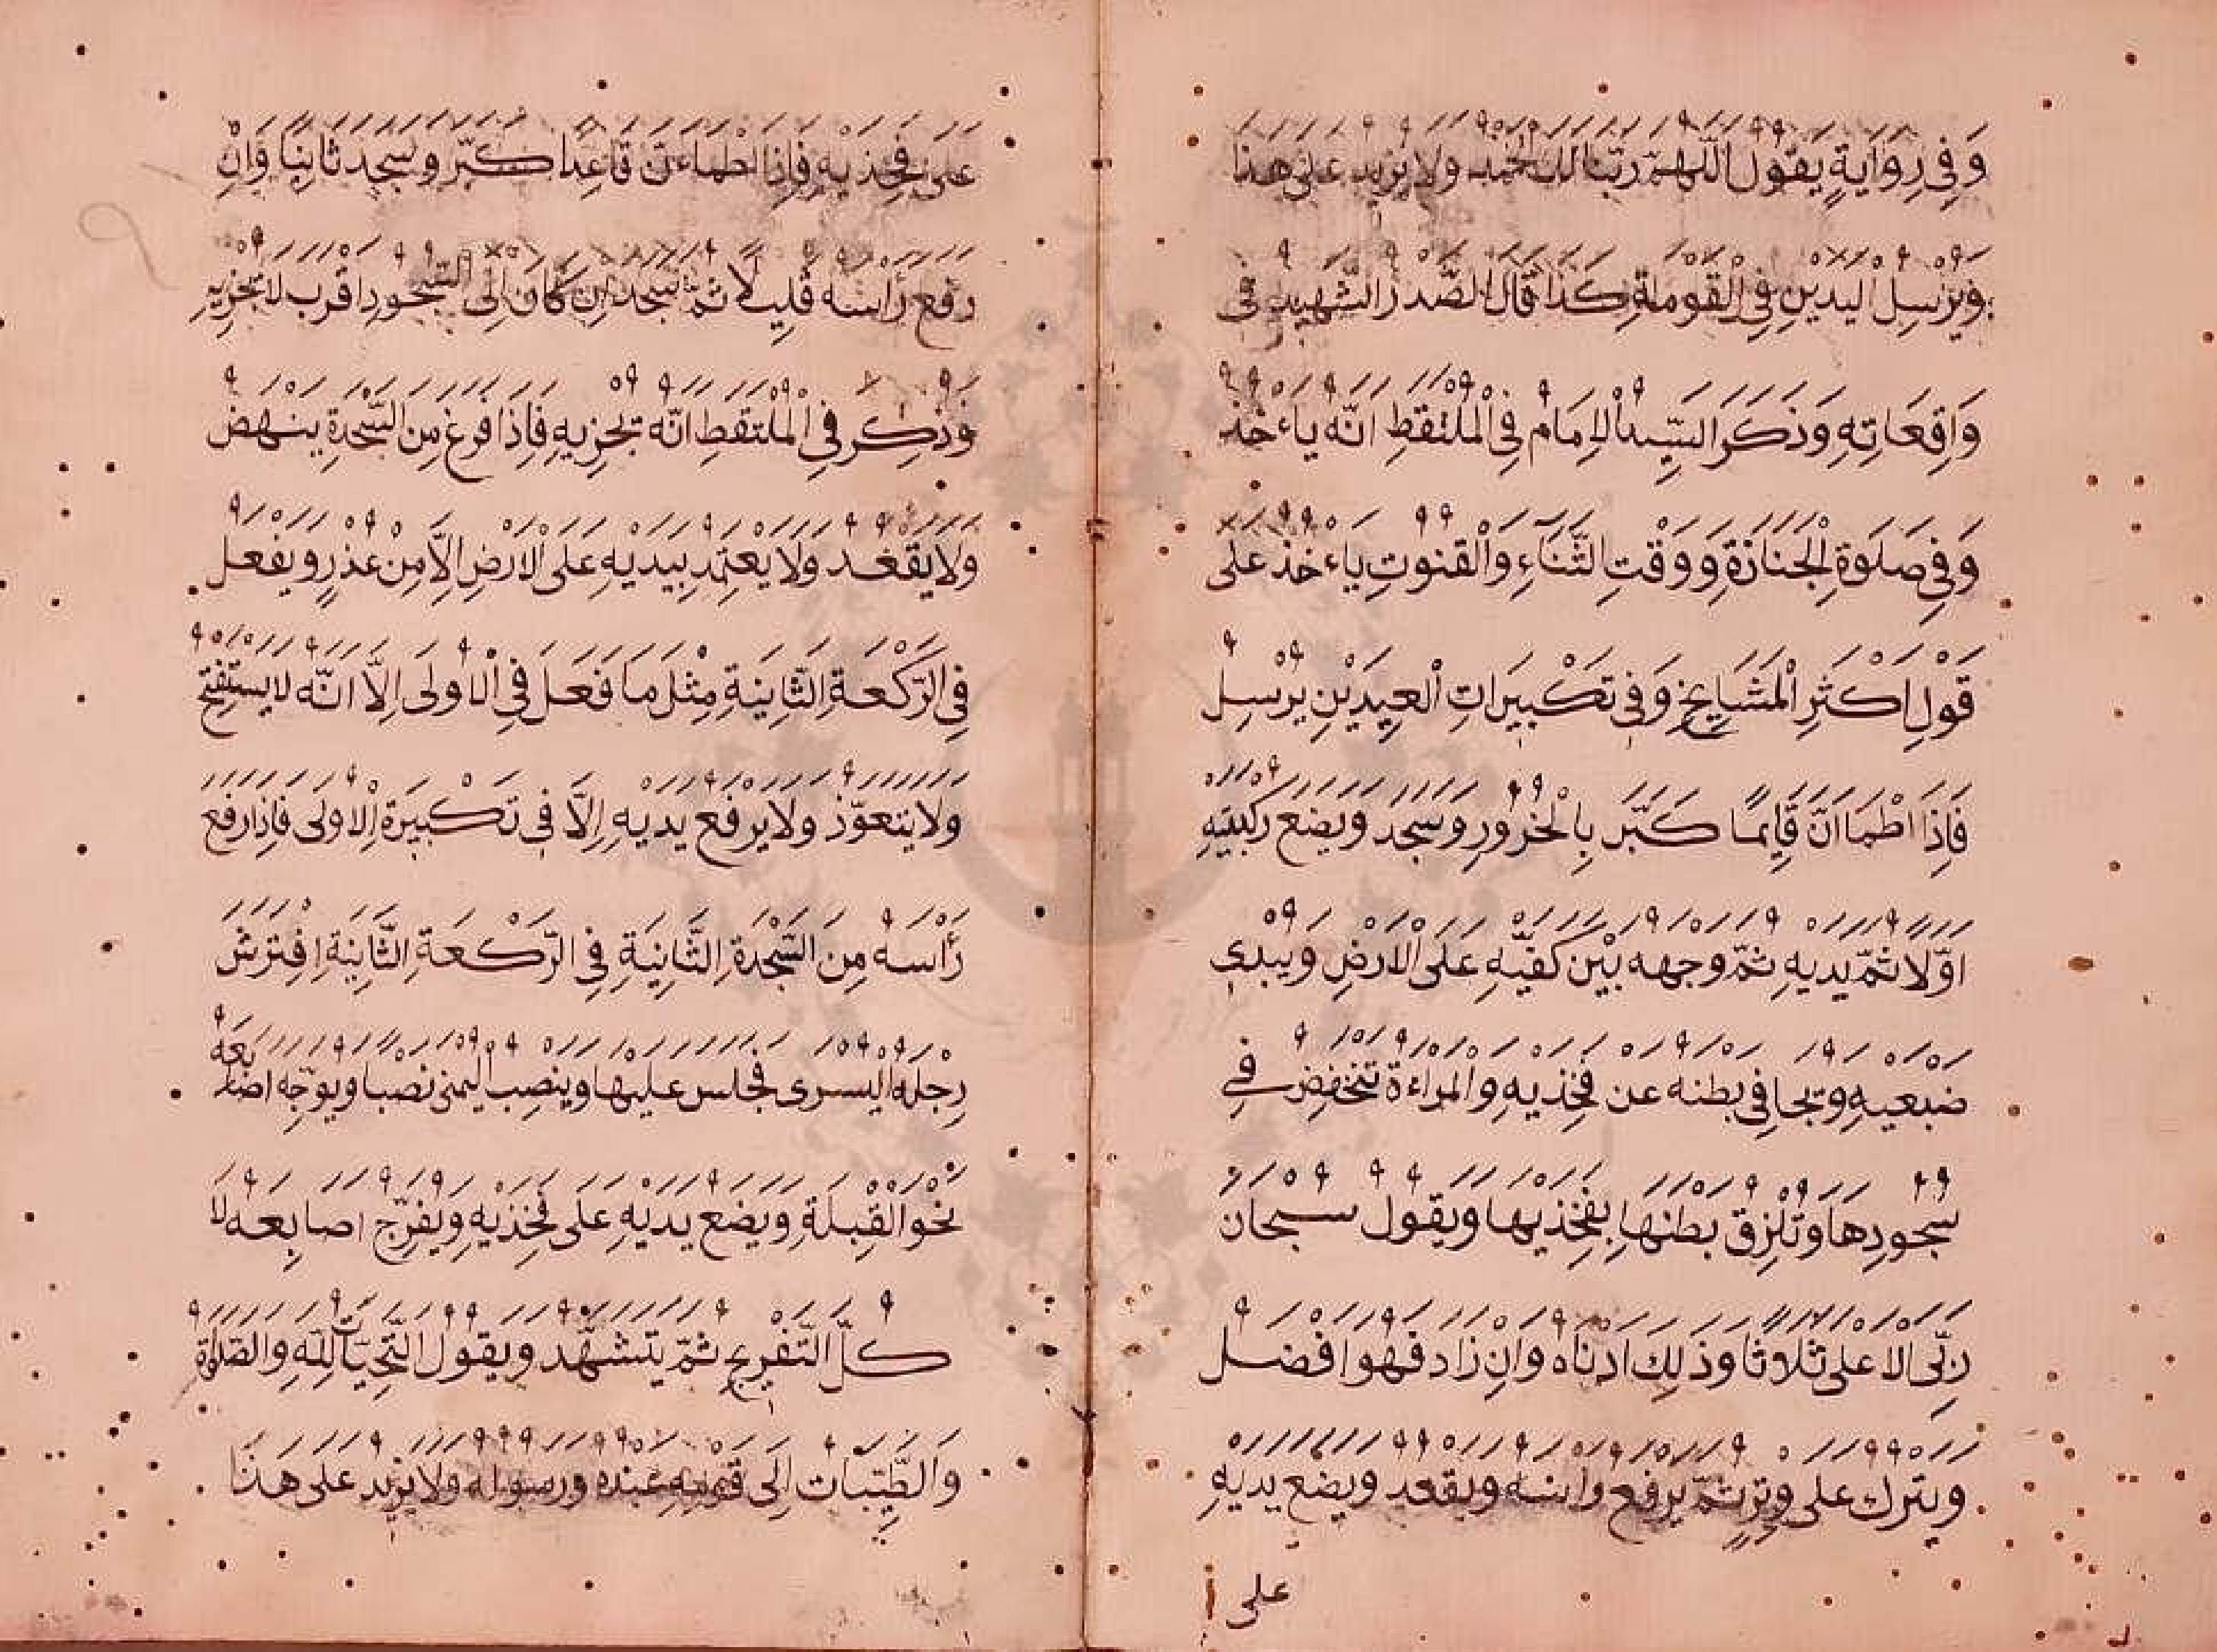 وَفِي رِوَايَةٍ يَقُولُ اللّٰهُمَّ رَبَّنَا لَكَ الْحَمْدُ وَلَا يَزِيدُ عَلَى هَذَا
وَيُرْسِلُ الْيَدَيْنِ فِي الْقَوْمَةِ كَذَا قَالَ الصَّدْرُ الشَّهِيدُ فِي
وَاقِعَاتِهِ وَذَكَرَ السَّيِّدُ الْإِمَامُ فِي الْمُلْتَقَطِ اَنَّهُ يَاءْخُذُ
وَفِي صَلَوةِ الْجَنَازَةِ وَوَقْتِ الثَّنَاءِ وَالْقُنُوتِ يَاءْخُذُ عَلَى
قَوْلِ اَكْثَرِ الْمَشَايِخِ وَفِي تَكْبِيرَاتِ الْعِيدَيْنِ يُرْسِلُ
فَاِذَا اطْمَاانَّ قَائِمًا كَبَّرَ بِالْخُرُورِ وَسَجَدَ وَيَضَعُ رُكْبَتَيْهِ
اَوَّلًا ثُمَّ يَدَيْهِ ثُمَّ وَجْهَهُ بَيْنَ كَفَّيْهِ عَلَى الْاَرْضِ وَيُبْدِي
ضَبْعَيْهِ وَيُجَافِي بَطْنَهُ عَنْ فَخِذَيْهِ وَالْمَرْاءَةُ تَنْخَفِضُ فِي
سُجُودِهَا وَتُلْزِقُ بَطْنَهَا بِفَخِذَيْهَا وَيَقُولُ سُبْحَانَ
رَبِّيَ الْاَعْلَى ثَلَاثًا وَذَلِكَ اَدْنَاهُ وَاِنْ زَادَ فَهُوَ اَفْضَلُ
وَيَتْرُكُ عَلَى وِتْرٍ ثُمَّ يَرْفَعُ رَاْسَهُ وَيَقْعُدُ وَيَضَعُ يَدَيْهِ
على
عَلَى فَخِذَيْهِ فَاِذَا اطْمَاءَنَّ قَاعِدًا كَبَّرَ وَسَجَدَ ثَانِيًا وَاِنْ
رَفَعَ رَأْسَهُ قَلِيلًا ثُمَّ سَجَدَ اِنْ كَانَ اِلَى السُّجُودِ اَقْرَبُ لَا تُجْزِيهِ
وَذُكِرَ فِي الْمُلْتَقَطِ اَنَّهُ تُجْزِيهِ فَاِذَا فَرَغَ مِنَ السَّجْدَةِ يَنْهَضُ
وَلَا يَقْعُدُ وَلَا يَعْتَمِدُ بِيَدَيْهِ عَلَى الْاَرْضِ اِلَّا مِنْ عُذْرٍ وَيَفْعَلُ
فِي الرَّكْعَةِ الثَّانِيَةِ مِثْلَ مَا فَعَلَ فِي الْاُولَى اِلَّا اَنَّهُ لَا يَسْتَفْتِحُ
وَلَا يَتَعَوَّذُ وَلَا يَرْفَعُ يَدَيْهِ اِلَّا فِي تَكْبِيرَةِ الْاُولَى فَاِذَا رَفَعَ
رَأْسَهُ مِنَ السَّجْدَةِ الثَّانِيَةِ فِي الرَّكْعَةِ الثَّانِيَةِ اِفْتَرَشَ
رِجْلَهُ الْيُسْرَى فَجَلَسَ عَلَيْهَا وَيَنْصِبُ الْيُمْنَى نَصْبًا وَيُوَجِّهُ اَصَابِعَهُ
نَحْوَ الْقِبْلَةِ وَيَضَعُ يَدَيْهِ عَلَى فَخِذَيْهِ وَيُفَرِّجُ اَصَابِعَهُ لَا
كُلَّ التَّفْرِيجِ ثُمَّ يَتَشَهَّدُ وَيَقُولُ التَّحِيَّاتُ لِلّٰهِ وَالصَّلَوَاةُ
وَالطَّيِّبَاتُ اِلَى قَوْلِهِ عَبْدُهُ وَرَسُولُهُ وَلَا يَزِيدُ عَلَى هَذَا